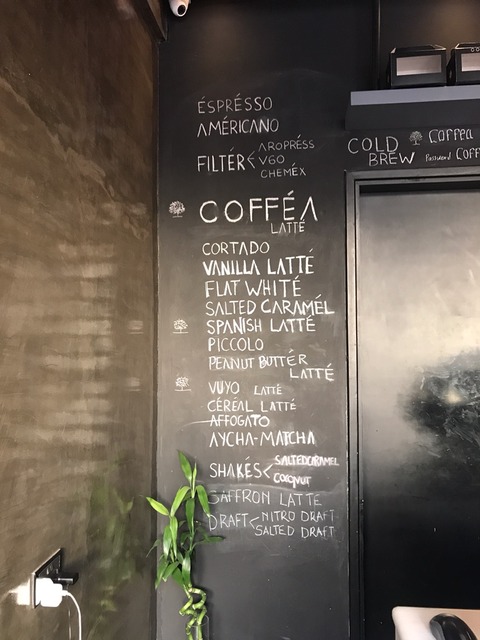 ÉSPRÉSSO
AMÉRICANO
FILTÉR< AROPRÉSS
V60
CHEMÉX
COFFÉA
LATTÉ
CORTADO
VANILLA LATTÉ
FLAT WHITÉ
SALTED CARAMÉL
SPANISH LATTÉ
PICCOLO
PEANUT BUTTÉR
LATTÉ
VUYO LATTÉ
CÉRÉAL LATTÉ
AFFOGATO
AYCHA-MATCHA
SHAKÉS< SALTEDCARAMEL
COCONUT
SAFFRON LATTE
DRAFT< NITRO DRAFT
SALTED DRAFT
COLD BREW
Coffea